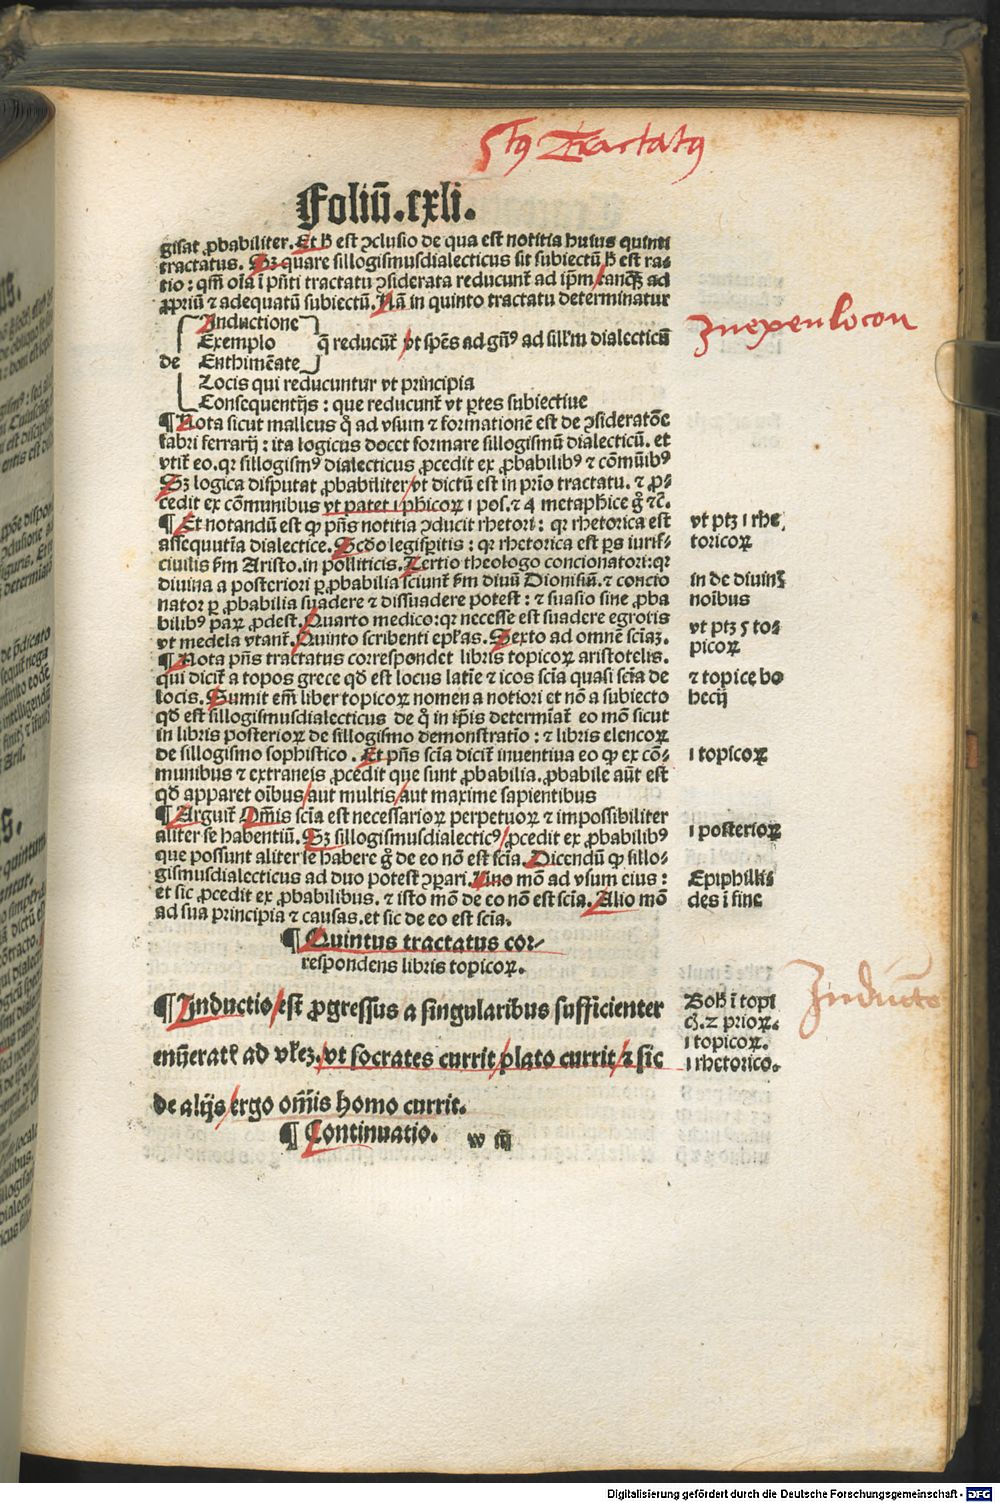 5tꝰ Tractatꝰ
Foliū.cxli.
gisat ꝓbabiliter. Et ħ est ↄclusio de qua est notitia huius quinti
tractatus. Sꝫ quare sillogismusdialecticus sit subiectū ħ est ra⸗
tio: qm̄ oīa ī pn̄ti tractatu ↄsiderata reducunt̄ ad ip̄m tanqꝫ ad
ꝓpriū ⁊ adequatū subiectū. Nā in quinto tractatu determinatur
Inductione
Exemplo q̄ reducūt̄ vt sp̄es ad gn̄ꝰ ad sill'm dialecticū
de Enthimēate
Locis qui reducuntur vt principia
Consequentijs: que reducunt̄ vt ꝑtes subiectiue
Inexenlocon
¶ Nota sicut malleus qͦ ad vsum ⁊ formationē est de ↄsideratōe
fabri ferrarij: ita logicus docet formare sillogismū dialecticū. et
vtit̄ eo. qr sillogismꝰ dialecticus ꝓcedit ex ꝓbabilibꝰ ⁊ cōmūibꝰ
Sꝫ logica disputat ꝓbabiliter vt dictū est in prīo tractatu. ⁊ ꝓ⸗
cedit ex cōmunibus vt patet ı phīcoꝝ ı pos. ⁊ 4 metaphice gͦ ⁊c̄.
¶ Et notandū est ꝙ pn̄s notitia ↄducit rhetori: qr rhetorica est
assequutīa dialectice. Scd̄o legisꝑitis: qr rhetorica est ꝑs iuris⸗
ciuilis ẜm Aristo. in politicis. Tertio theologo concionatori: qr
diuina a posteriori ꝑ ꝓbabilia sciunt̄ ẜm diuū Dionisiū. ⁊ concio
nator ꝑ ꝓbabilia suadere ⁊ dissuadere potest: ⁊ suasio sine ꝓba
bilibꝰ paꝝ ꝓdest. Quarto medico: qr necesse est suadere egrotis
vt medela vtant̄. Quinto scribenti ep̄las. Sexto ad omnē sciāꝫ.
vt ptꝫ ı rhe
toricoꝝ
in de diuinꝭ
noībus
vt ptꝫ 5 to⸗
picoꝝ
¶ Nota pn̄s tractatus correspondet libris topicoꝝ aristotelis.
qui dicit̄ a topos grece qd̄ est locus latīe ⁊ icos scīa quasi scīa de
locis. Sumit em̄ liber topicoꝝ nomen a notiori et nō a subiecto
qd̄ est sillogismusdialecticus de qͦ in ip̄is determīat̄ eo mō sicut
in libris posterioꝝ de sillogismo demonstratīo: ⁊ libris elencoꝝ
de sillogismo sophistico. Et pn̄s scīa dicit̄ inuentiua eo ꝙ ex cō⸗
munibus ⁊ extraneis ꝓcedit que sunt ꝓbabilia. ꝓbabile aūt est
qd̄ apparet oībus aut multis aut maxime sapientibus
⁊ topice bo
hecij
ı topicoꝝ
¶ Arguit̄ Om̄is scīa est necessarioꝝ perpetuoꝝ ⁊ impossibiliter
aliter se habentiū. Sꝫ sillogismusdialecticꝰ ꝓcedit ex ꝓbabilibꝰ
que possunt aliter se habere gͦ de eo nō est scīa. Dicendū ꝙ sillo⸗
gismusdialecticus ad duo potest ↄꝑari. Uno mō ad vsum eius:
et sic ꝓcedit ex ꝓbabilibus. ⁊ isto mō de eo nō est scīa. Alio mō
ad sua principia ⁊ causas. et sic de eo est scīa.
ı posterioꝝ
Epiphilli⸗
des ī fine
¶ Quintus tractatus cor⸗
respondens libris topicoꝝ.
¶ Inductio est ꝓgressus a singularibus sufficienter
enūerat' ad vl'eꝫ. vt socrates currit plato currit ⁊ sic
de alijs ergo om̄is homo currit.
Boh̄ ī topi
⁊ prioꝝ.
ı topicoꝝ.
ı rhetorico.
Inductio
¶ Continuatio.
w iij
Digitalisierung gefördert durch die Deutsche Forschungsgemeinschaft - DFG